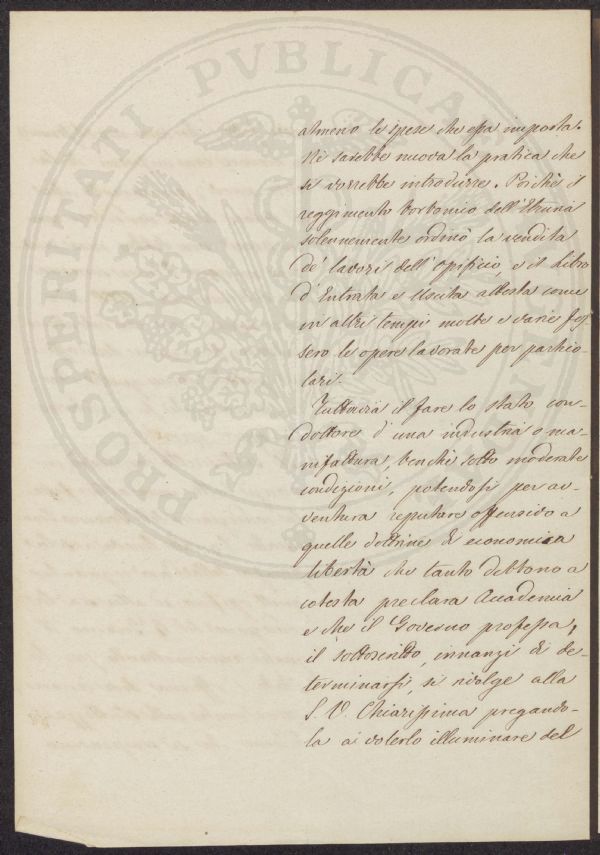 PROSPERITATI PVBLICAE
almeno le spese che essa importa.
Nè sarebbe nuova la pratica che
si vorrebbe introdurre. Poichè il
reggimento borbonico dell'Etruria
solennemente ordinò la vendita
de' lavori dell'opificio, e il Libro
d'Entrata e Uscita attesta come
in altri tempi molte e varie fos
sero le opere lavorate per partico-
lari.
Tuttavia il fare lo stato con-
duttore d'una industria o ma-
nifattura, benchè sotto moderate
condizioni, potendosi per av-
ventura reputare offensivo a
quelle dottrine di economica
libertà che tanto debbono a
cotesta preclara Accademia
e che il Governo professa,
il sottoscritto, innanzi di de-
terminarsi, si rivolge alla
S. V. Chiarissima pregando-
la a volerlo illuminare del